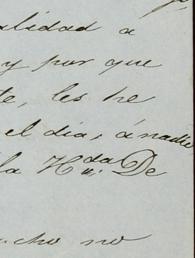 alidad a
y por que
te, les he
el dia, á nadie
la H.da De
ucho no